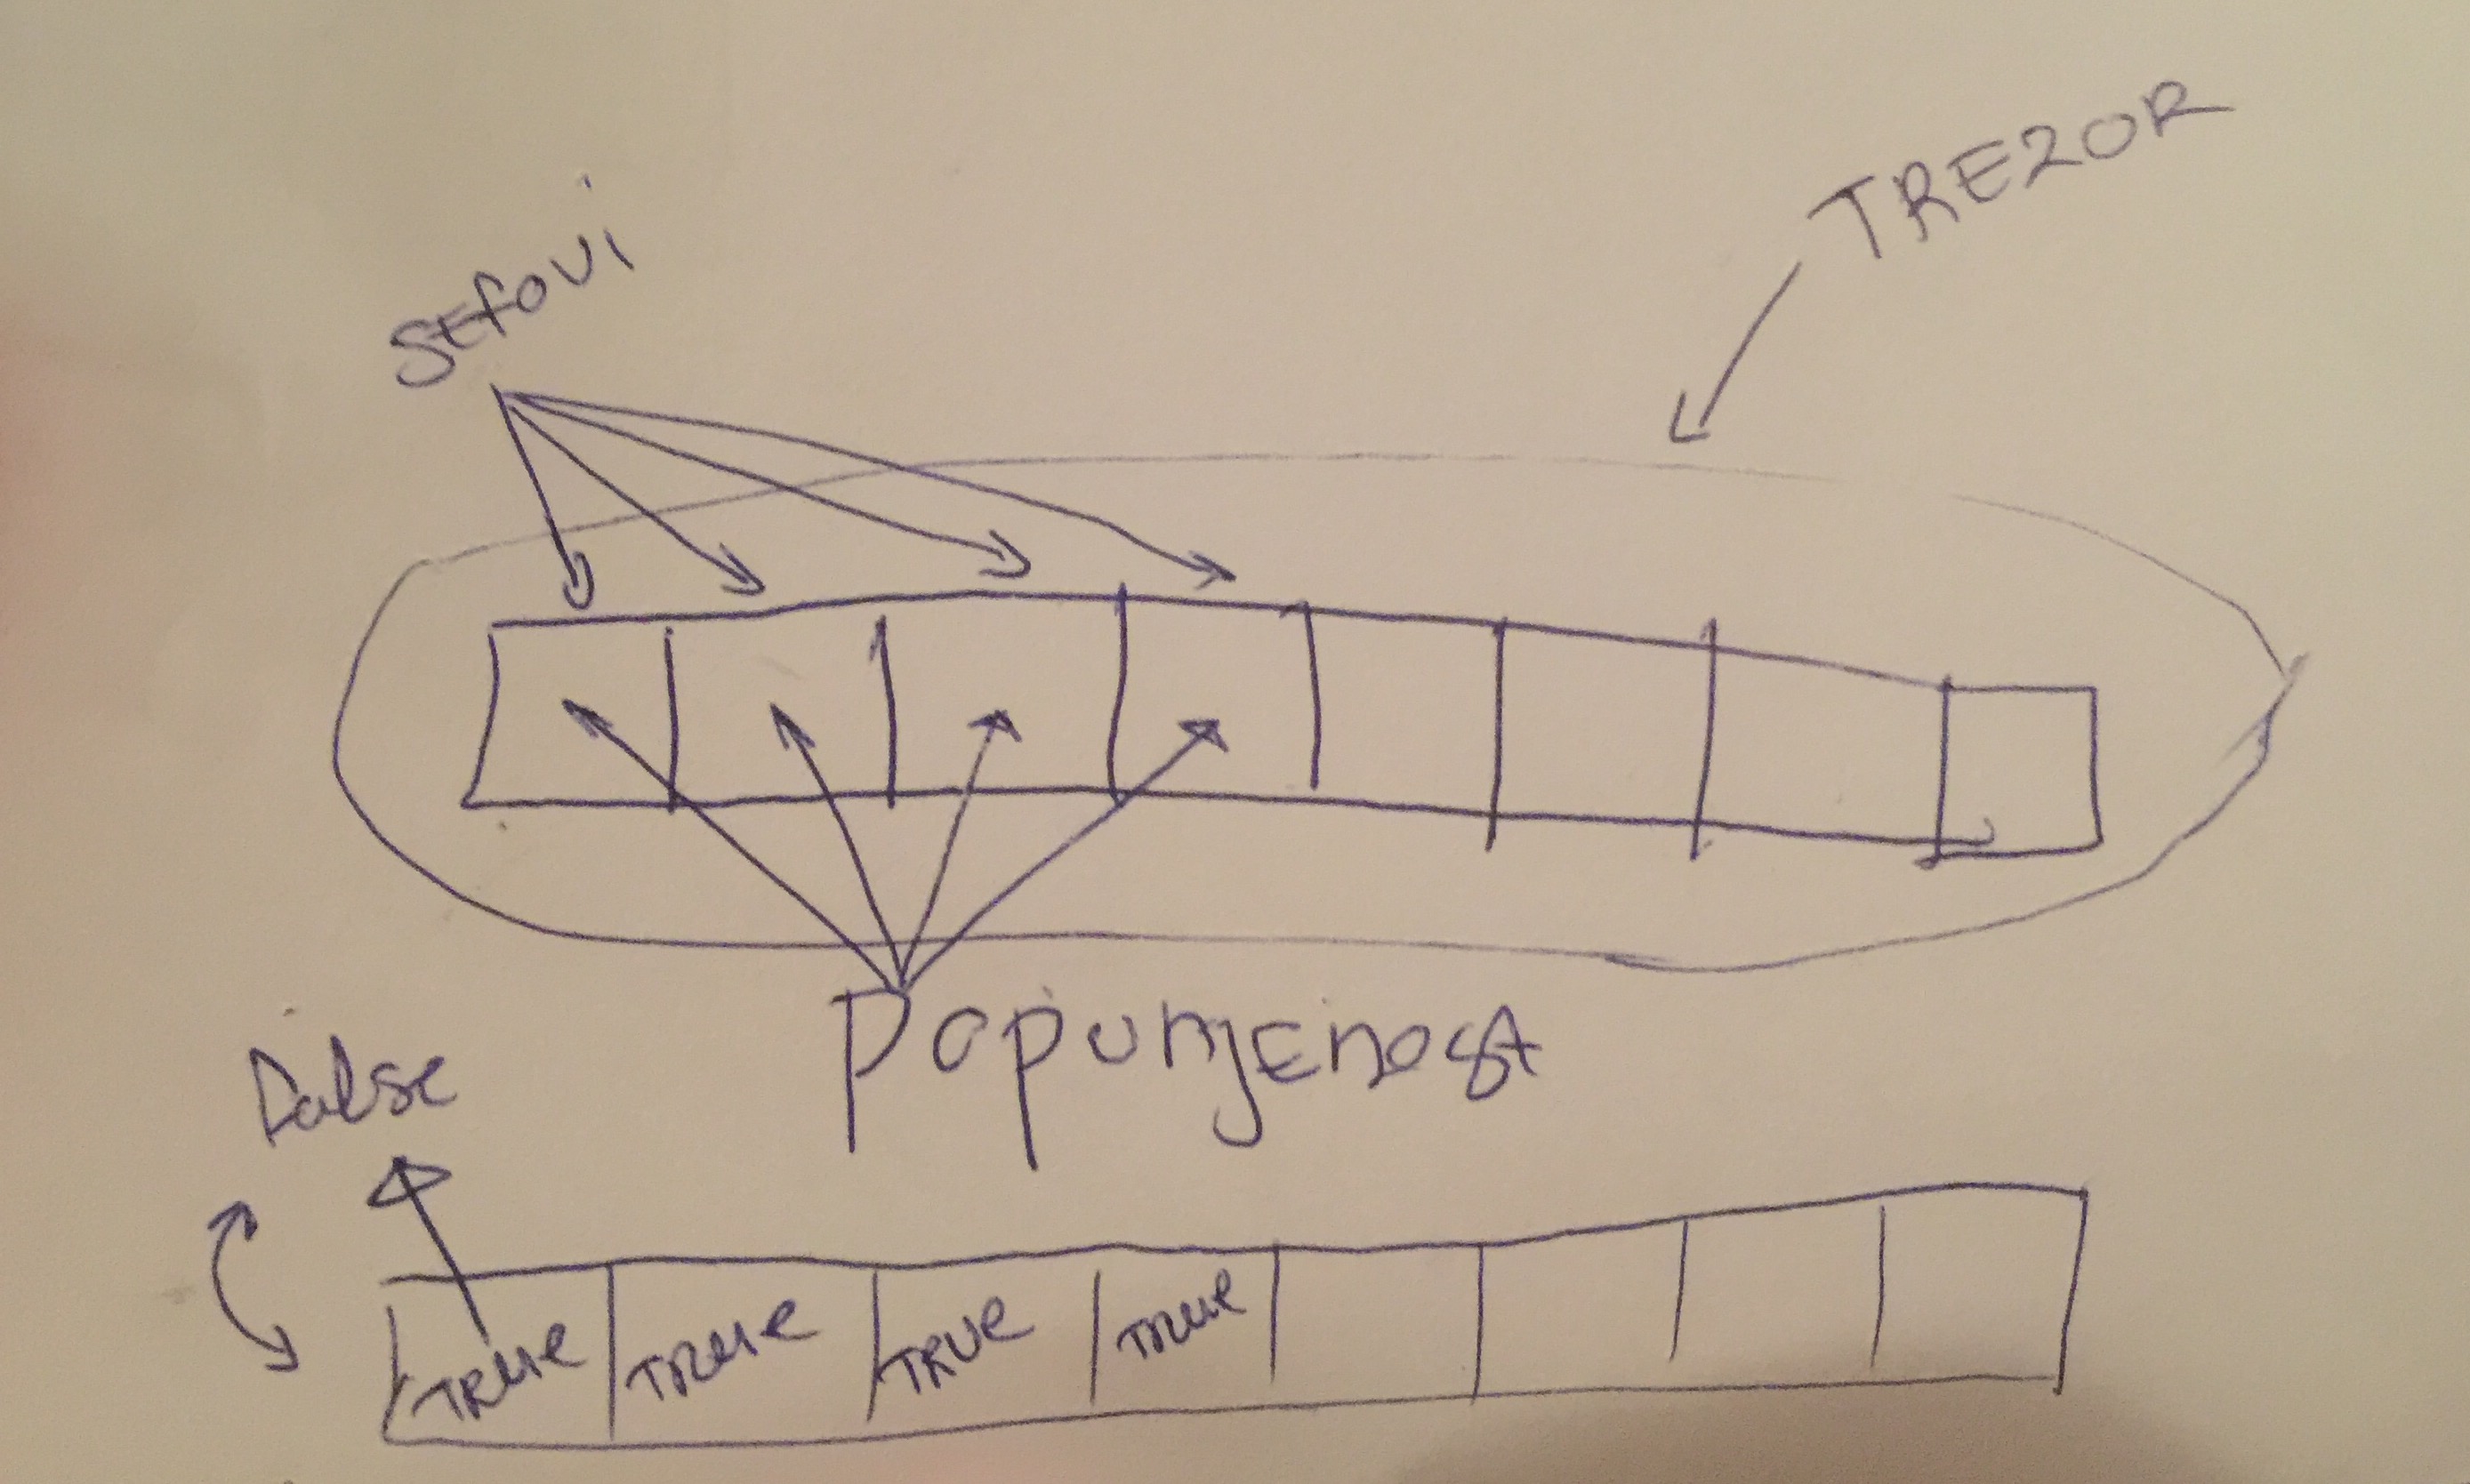 TREZOR
SEfovi
PopunjEnost
False
TRUe TRUe TRUe TRUe